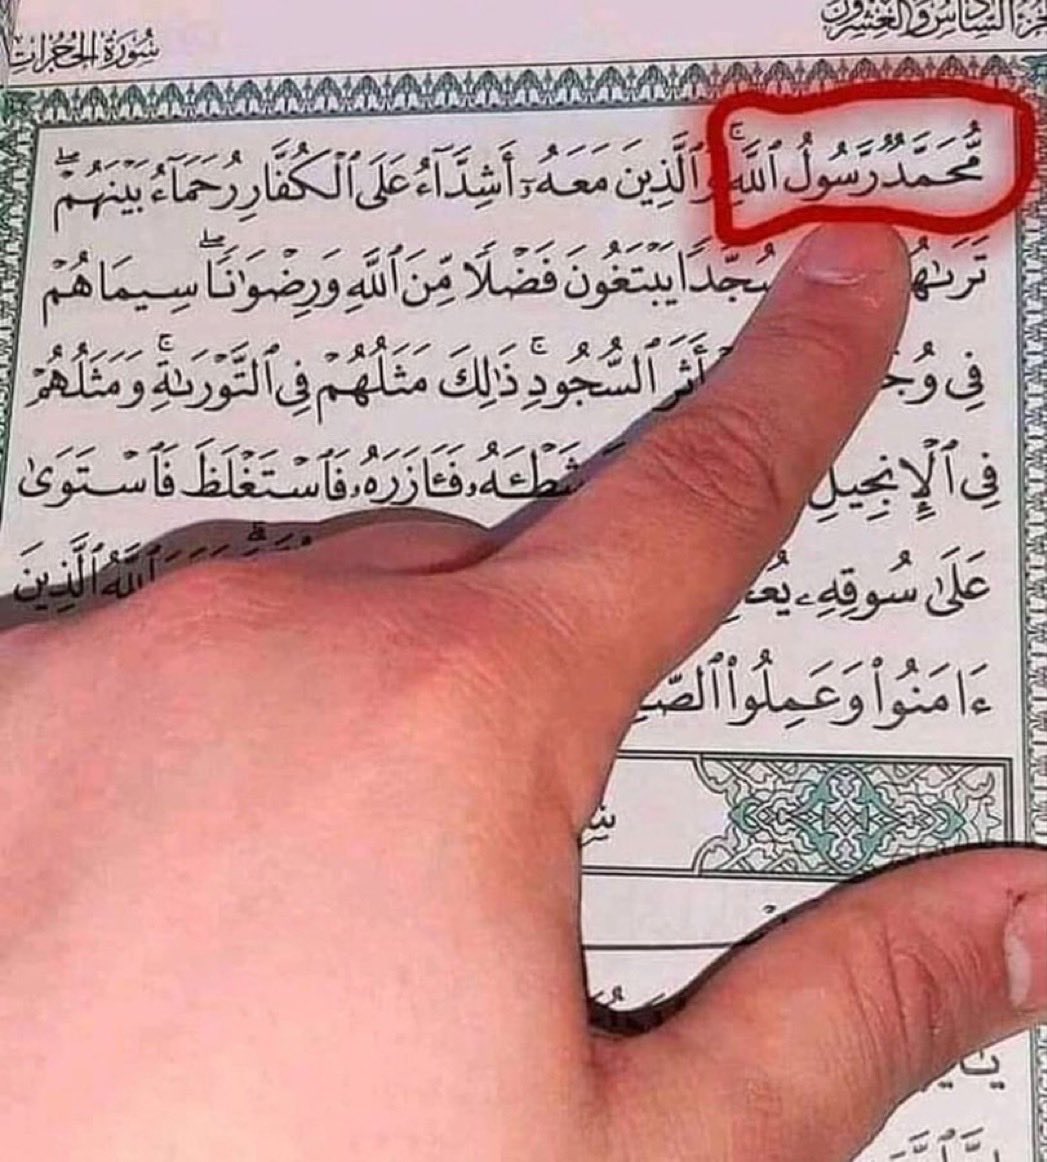 الجزء السادس والعشرون
سُورَةُ الحُجُرَات
مُّحَمَّدٌ رَّسُولُ ٱللَّهِۚ وَٱلَّذِينَ مَعَهُۥٓ أَشِدَّآءُ عَلَى ٱلۡكُفَّارِ رُحَمَآءُ بَيۡنَهُمۡۖ
تَرَىٰهُمۡ سُجَّدٗا يَبۡتَغُونَ فَضۡلٗا مِّنَ ٱللَّهِ وَرِضۡوَٰنٗاۖ سِيمَاهُمۡ
فِي أَثَرِ ٱلسُّجُودِۚ ذَٰلِكَ مَثَلُهُمۡ فِي ٱلتَّوۡرَىٰةِۚ وَمَثَلُهُمۡ
فِي ٱلۡإِنجِيلِ شَطۡـَٔهُۥ فَـَٔازَرَهُۥ فَٱسۡتَغۡلَظَ فَٱسۡتَوَىٰ
عَلَىٰ سُوقِهِۦ ٱللَّهُ ٱلَّذِينَ
ءَامَنُواْ وَعَمِلُواْ